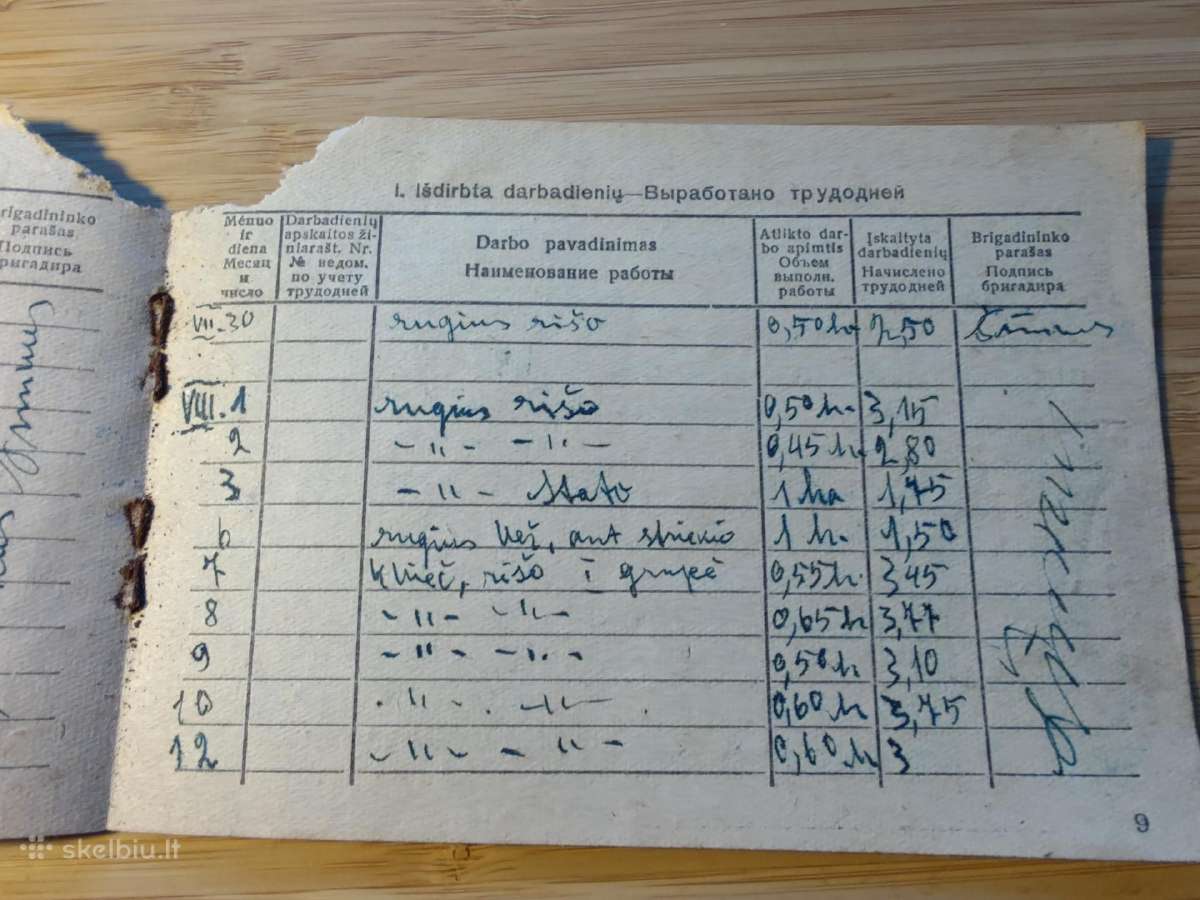 rigadininko
parašas
Подпись
бригадира
I. Išdirbta darbadienių—Выработано трудодней
Mėnuo ir diena Месяц и число
Darbadienių apskaitos žiniarašt. Nr. № ведом. по учету трудодней
Darbo pavadinimas Наименование работы
Atlikto darbo apimtis Объем выполн. работы
Įskaityta darbadienių Начислено трудодней
Brigadininko parašas Подпись бригадира
VII. 30 rugius rišo 0,50 ha 2,50
VIII. 1 rugius rišo 0,50 h. 3,15
2 – " – – " – 0,45 h. 2,80
3 – " – statō 1 ha 1,75
6 rugius vež, ant 1 h. 1,50
7 rišo į 0,55 h. 3,45
8 – " – – " – 0,65 h 3,77
9 – " – – " – 0,50 h 3,10
10 – " – – " – 0,60 h 3,75
12 – " – – " – 0,60 h 3
9
skelbiu.lt